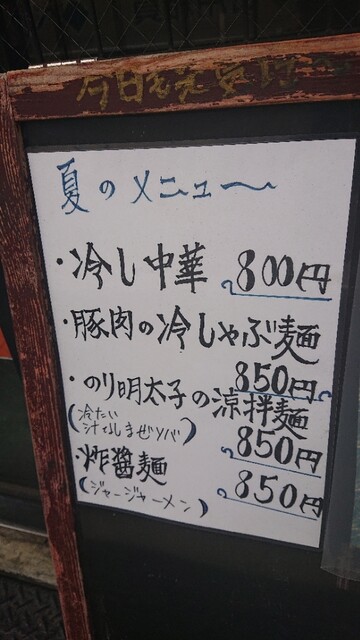 今日も元気に
夏のメニュー
・冷し中華 800円
・豚肉の冷しゃぶ麺
850円
・のり明太子の涼拌麺
(冷たい汁なしまぜソバ) 850円
・炸醤麺 850円
(ジャージャーメン)